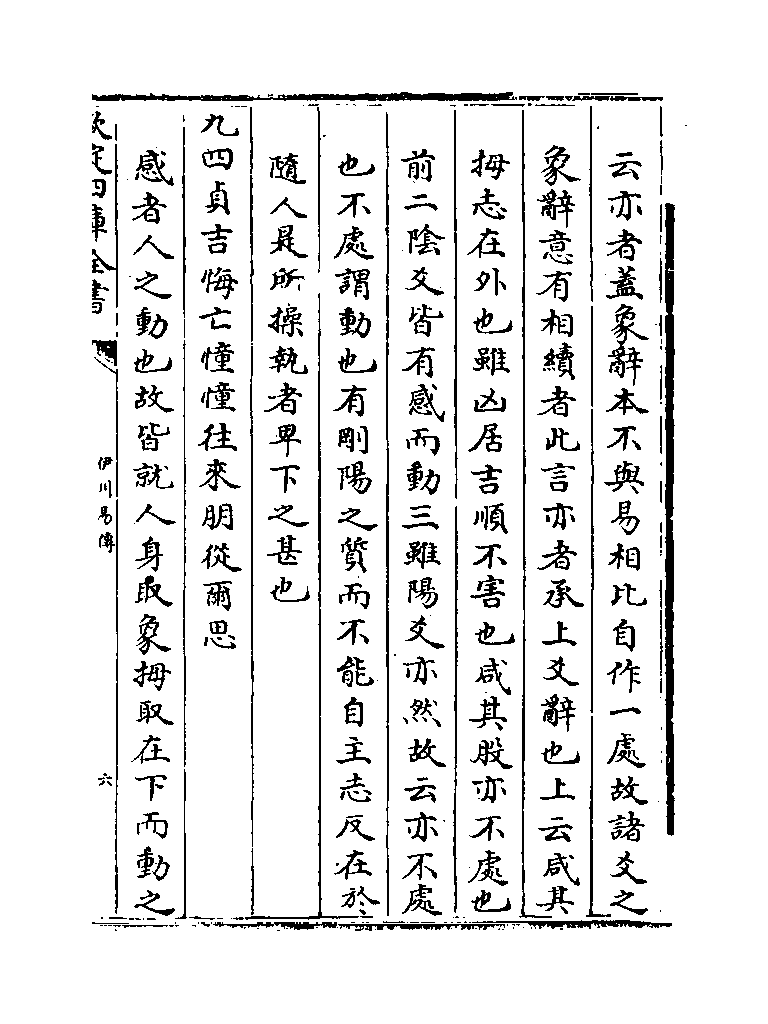 云亦者蓋象辭本不與易相比自作一處故諸爻之
象辭意有相續者此言亦者承上爻辭也上云咸其
拇志在外也雖凶居吉順不害也咸其股亦不處也
前二陰爻皆有感而動三雖陽爻亦然故云亦不處
也不處謂動也有剛陽之質而不能自主志反在於
隨人是所操執者卑下之甚也
九四貞吉悔亡憧憧往來朋從爾思
感者人之動也故皆就人身取象拇取在下而動之
欽定四庫全書
伊川易傳
六